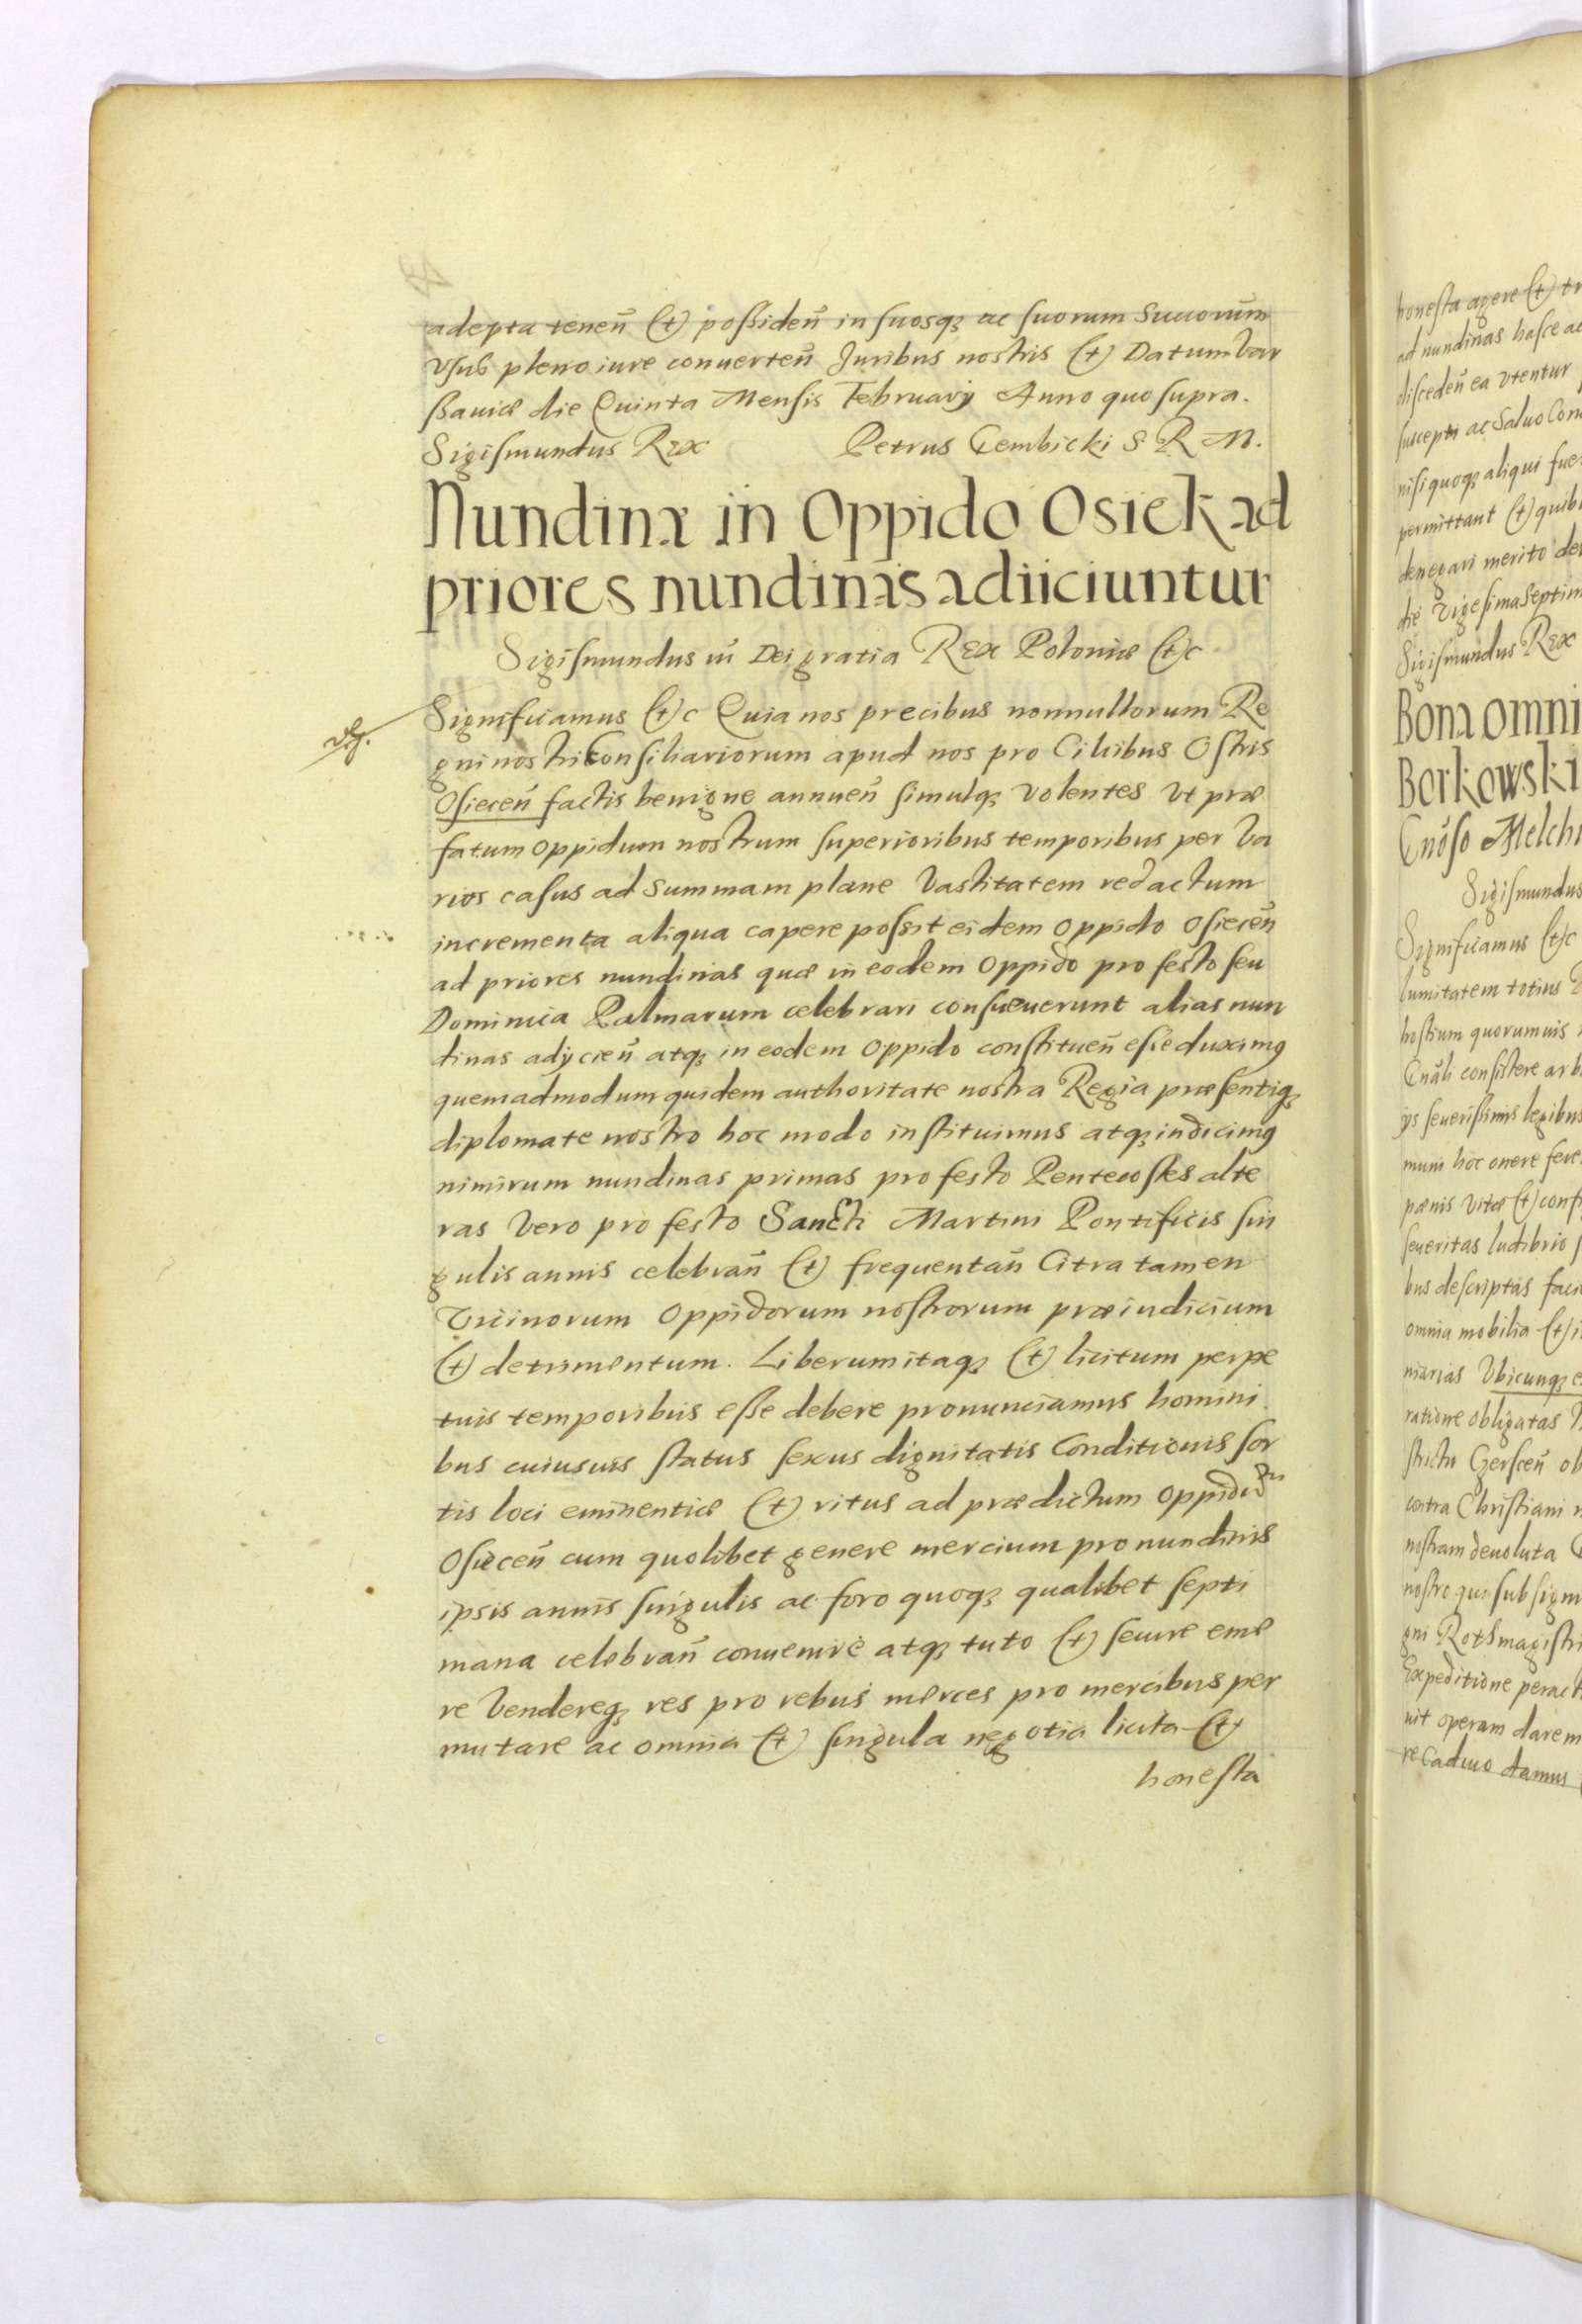 adepta teneñ (et) possideñ in suosq3 ac suorum Succorum
Usus pleno iure conuerteñ Juribus nostris (et) Datum Var
ssaviæ die Quinta Mensis Februarij Anno quo supra.
Sigismundus REX Petrus Gembicki S R M.
Nundinæ in Oppido Osiek ad
priores nundinas adiiciuntur
Sigismundus III Dei gratia REX Poloniæ (et)c
Significamus (et)c Quia nos precibus nonnullorum Re
gni nostri Consiliariorum apud nos pro Ciuibus Ostris
Osieceñ factis benigne annueñ simulq3 volentes Vt præ
fatum oppidum nostrum superioribus temporibus per Va
rios casus ad Summam plane Vastitatem redactum
incrementa aliqua capere possit eidem oppido Osieceñ
ad priores nundinas quæ in eodem Oppido pro festo seu
Dominica Palmarum celebrari consueuerunt alias nun
dinas adijcieñ atq3 in eodem oppido constitueñ esse duximq
quemadmodum quidem authoritate nostra Regia præsentiq3
diplomate nostro hoc modo instituimus atq3 indicimq
nimirum nundinas primas pro festo Pentecostes alte
ras Vero pro festo Sancti Martini Pontificis sin
gulis annis celebrañ (et) frequentañ Citra tamen
Vicinorum Oppidorum nostrorum præiudicium
(et) detrimentum. Liberum itaq3 (et) licitum perpe
tuis temporibus esse debere pronunciamus homini
bus cuiusuis status sexus dignitatis Conditionis sor
tis loci eminentiæ (et) ritus ad prædictum oppidum
Osieceñ cum quolibet genere mercium pro nundinis
ipsis annis singulis ac foro quoq3 qualibet septi
mana celebrañ conuenire atq3 tuto (et) secure eme
re Vendereq3 res pro rebus merces pro mercibus per
mutare ac omnia (et) singula negotia licita (et)
honesta
honesta agere (et) tr
ad nundinas hasce ac
discedeñ ea vtentur
suscepti ac Saluo Con
nisi quoq3 aliqui fue
permittant (et) quib
denegari merito de
die Vigesima Septim
Sigismundus REX
Bona omni
Borkowski
Gnoso Melch
Sigismundus
Significamus (et)c
lumitatem totius
hostium quorumuis
Gnali consistere arb
ijs seuerissimis legibus
muni hoc onere fere
pænis Vitæ (et) conf
seueritas ludibrio
bus descriptas faci
omnia mobilia (et) i
niarias Vbicunq3 e
ratione obligatas
strictu Gersceñ ob
contra Christiani
nostram deuoluta
nostro qui sub sign
gni Rothmagistri
Expeditione peract
uit operam darem
re Caduco damus